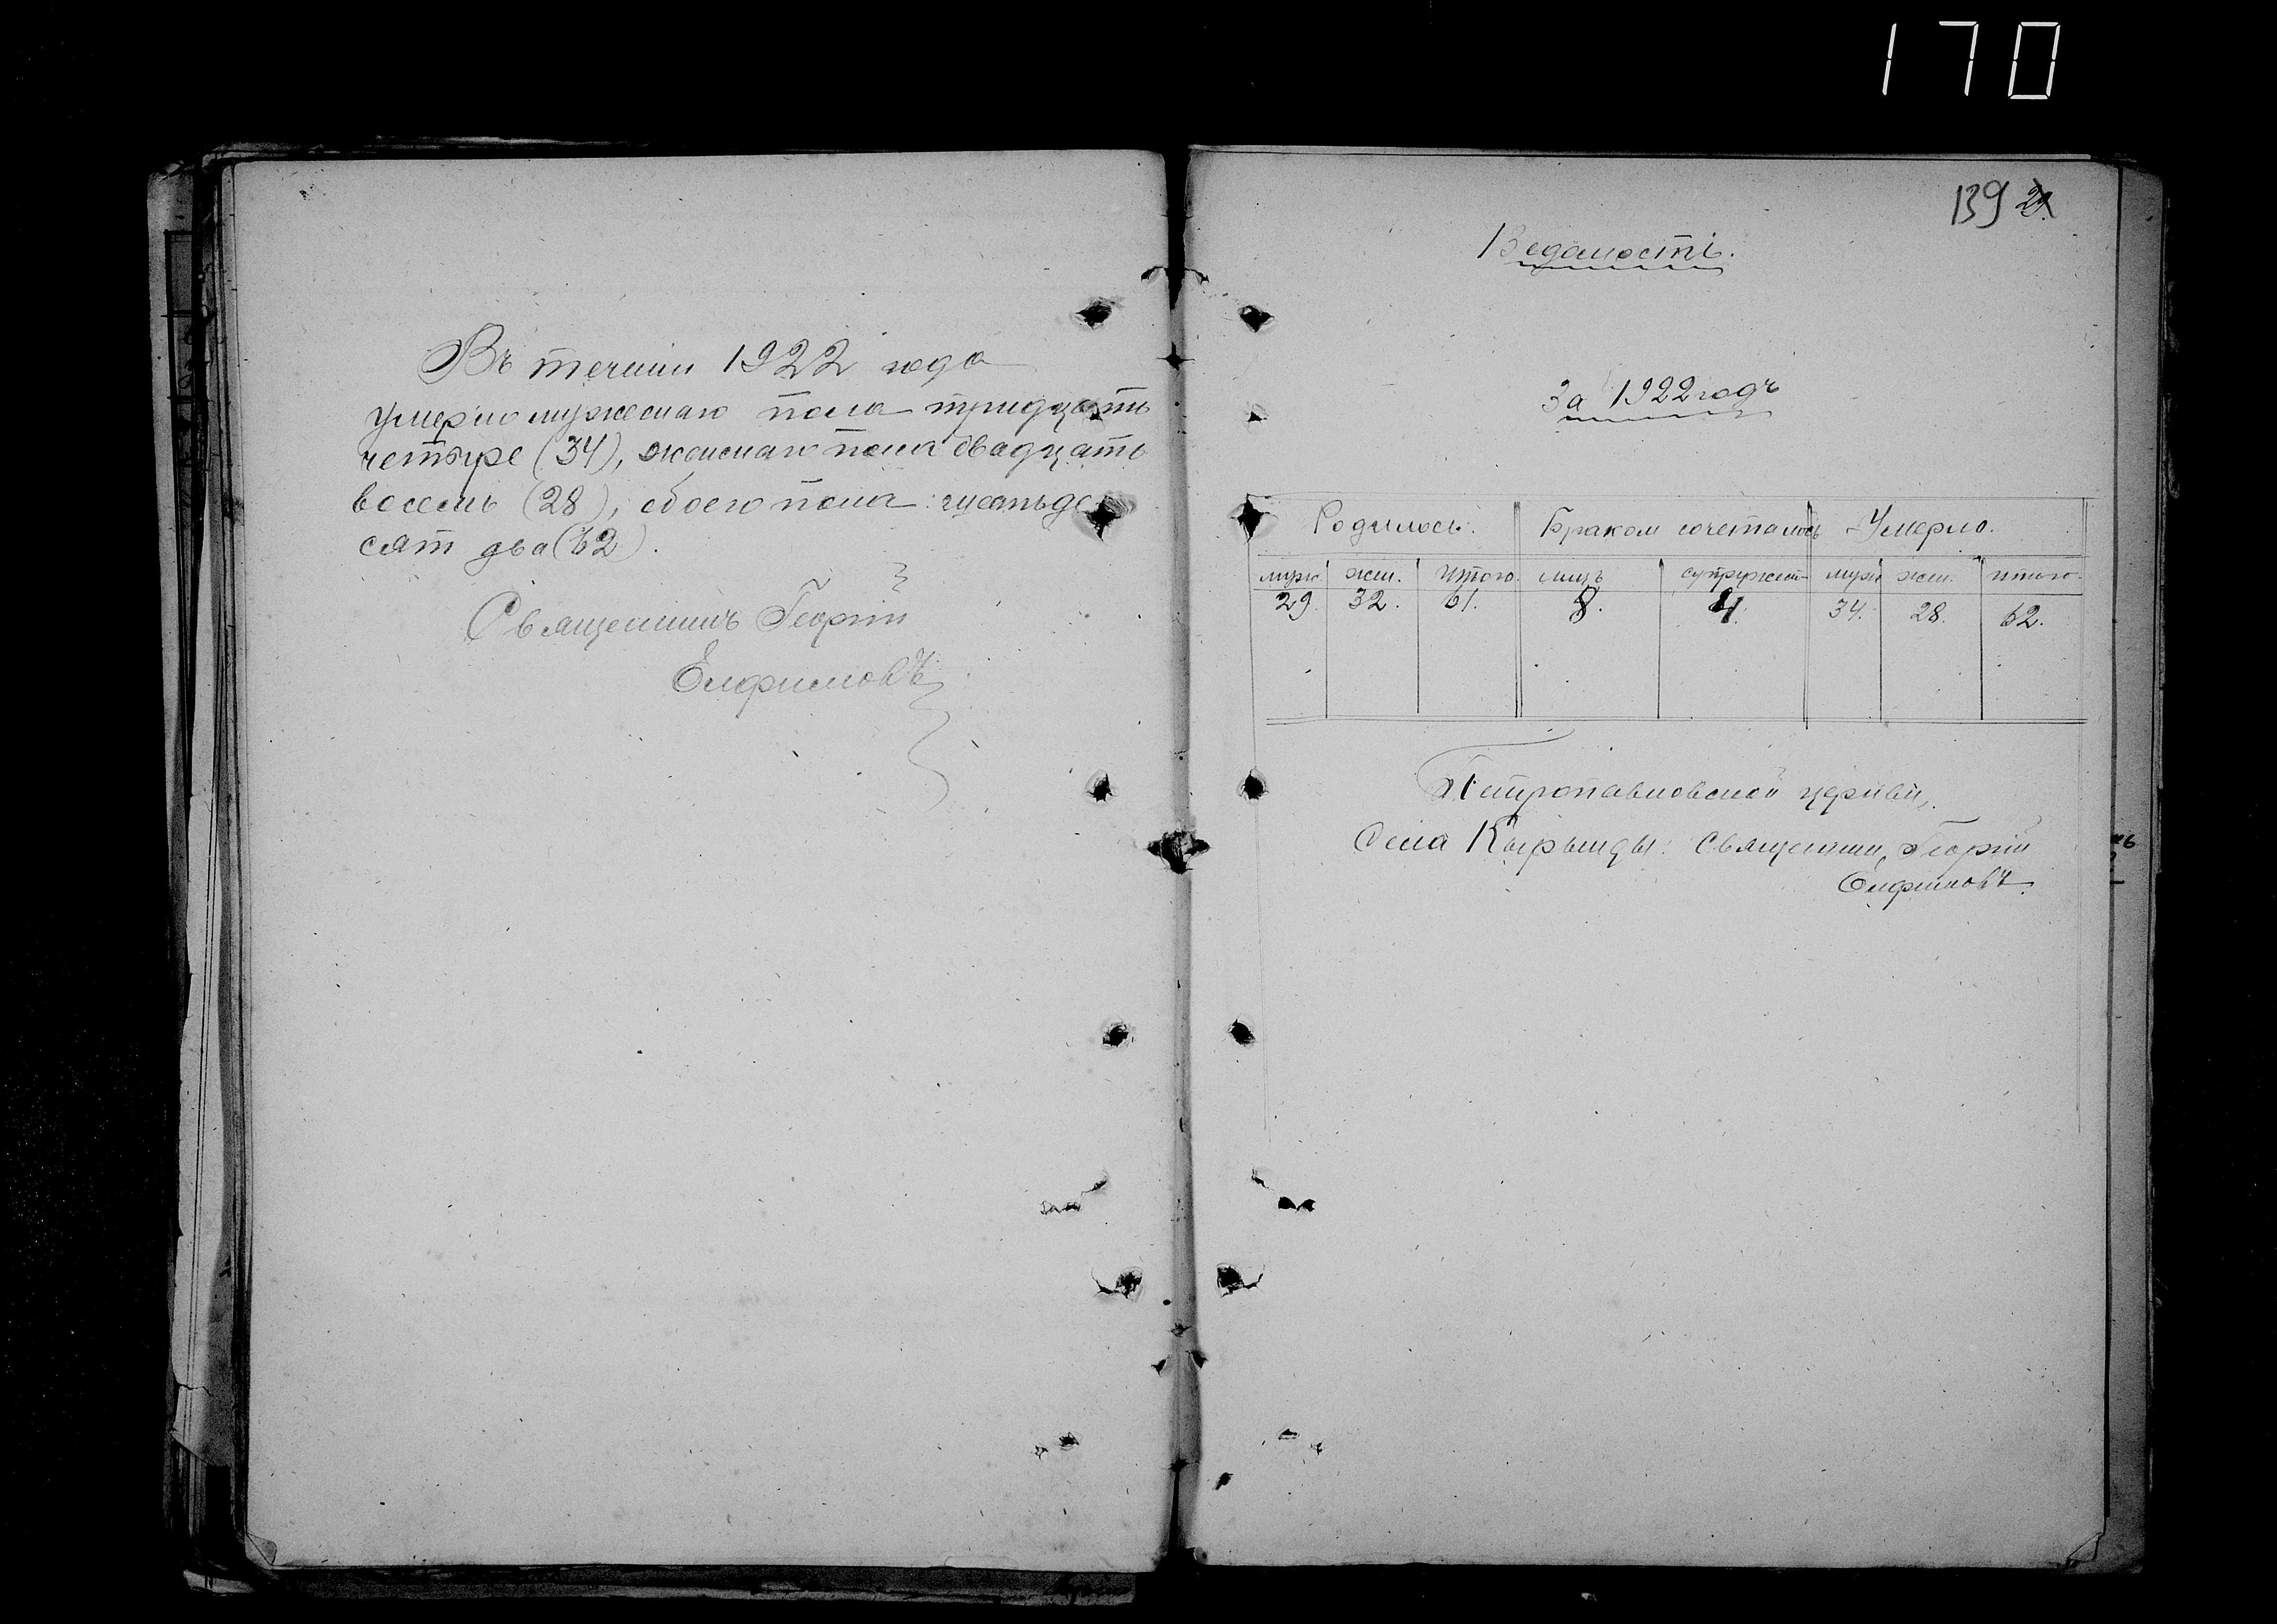 170
Въ течении 1922 года
умерло мужескаго пола тридцать
четыре (34), женскаго пола двадцать
восемь (28), обоего пола: шестьде-
сят два (62).
Священникъ Георгий
Елфимовъ
139 29.
Ведомость.
За 1922 годъ
Родилось. Браком сочеталось Умерло.
муж. жен. итого. лицъ супружест муж жен. итого.
29. 32. 61. 8. 4. 34. 28. 62.
Петропавловской церкви,
Села Кырынды: Священник, Георгий
Елфимовъ.